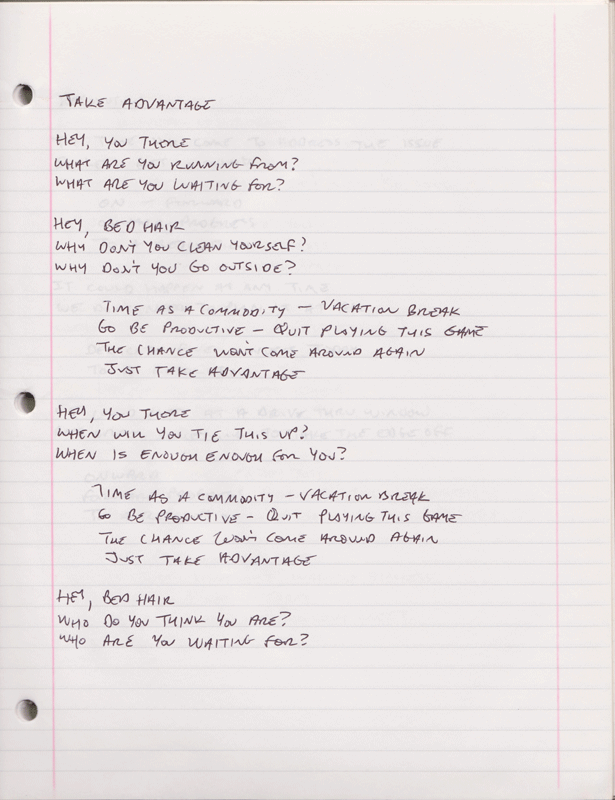 TAKE ADVANTAGE
HEY, YOU THERE
WHAT ARE YOU RUNNING FROM?
WHAT ARE YOU WAITING FOR?
HEY, BED HAIR
WHY DON'T YOU CLEAN YOURSELF?
WHY DON'T YOU GO OUTSIDE?
TIME AS A COMMODITY - VACATION BREAK
GO BE PRODUCTIVE - QUIT PLAYING THIS GAME
THE CHANCE WON'T COME AROUND AGAIN
JUST TAKE ADVANTAGE
HEY, YOU THERE
WHEN WILL YOU TIE THIS UP?
WHEN IS ENOUGH ENOUGH FOR YOU?
TIME AS A COMMODITY - VACATION BREAK
GO BE PRODUCTIVE - QUIT PLAYING THIS GAME
THE CHANCE WON'T COME AROUND AGAIN
JUST TAKE ADVANTAGE
HEY, BED HAIR
WHO DO YOU THINK YOU ARE?
WHO ARE YOU WAITING FOR?